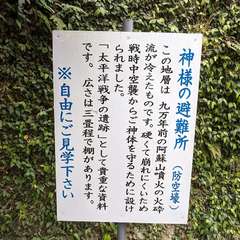 神様の避難所
（防空壕）
この地層は 九万年前の阿蘇山噴火の火砕
流が冷えたものです。硬くて崩れにくいため
戦時中空襲からご神体を守るために設け
られました。
「太平洋戦争の遺跡」として貴重な資料
です。 広さは三畳程で棚があります。
※自由にご見学下さい